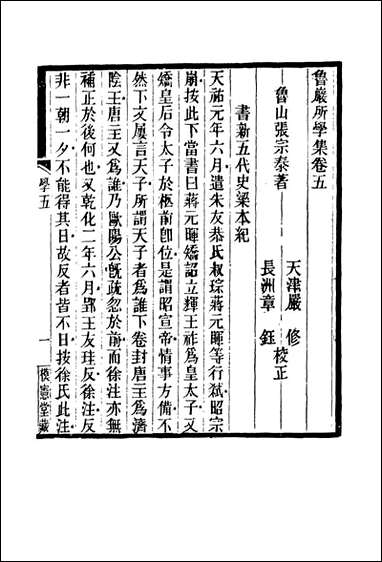 魯巖所學集卷五
魯山張宗泰著
天津嚴 修
長洲章 鈺
校正
書新五代史梁本紀
天祐元年六月遣朱友恭氏叔琮蔣元暉等行弒昭宗
崩按此下當書曰蔣元暉矯詔立輝王祚爲皇太子又
矯皇后令太子於柩前卽位是謂昭宣帝情事方備不
然下文屢言天子所謂天子者爲誰下卷封唐王爲濟
陰王唐王又爲誰乃歐陽公旣疏忽於前而徐注亦無
補正於後何也又乾化二年六月郢王友珪反徐注反
非一朝一夕不能得其日故反者皆不日按徐氏此注
學五
一
模憲堂藏